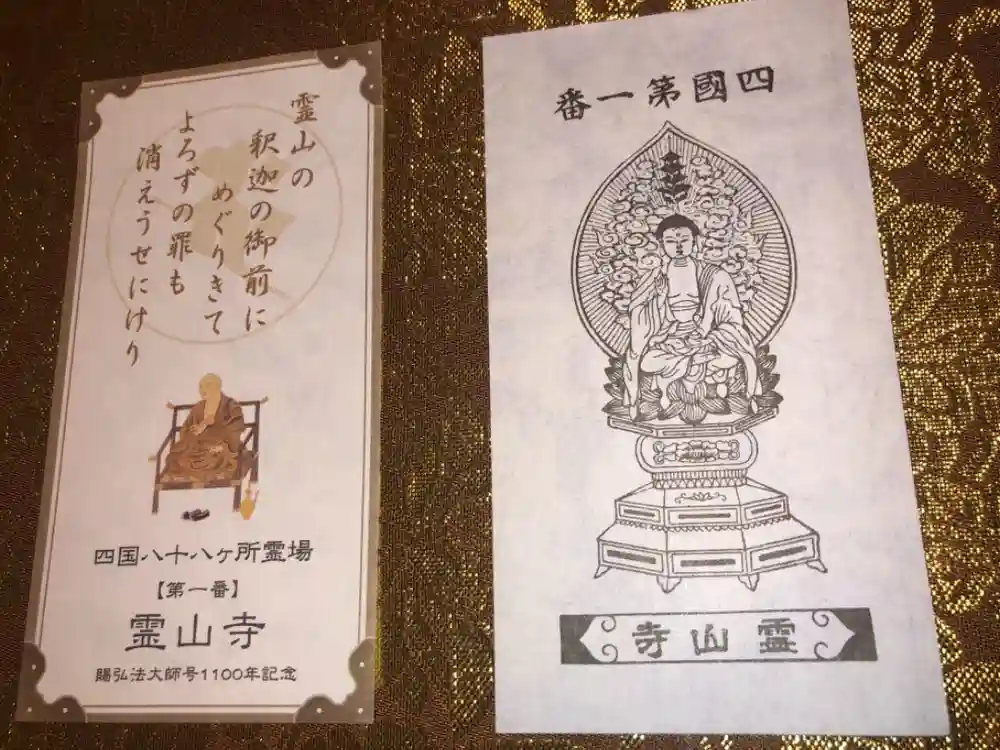 霊山の
釈迦の御前に
めぐりきて
よろずの罪も
消えうせにけり
四国八十八ヶ所霊場
【第一番】
霊山寺
賜弘法大師号1100年記念
四國第一番
霊山寺